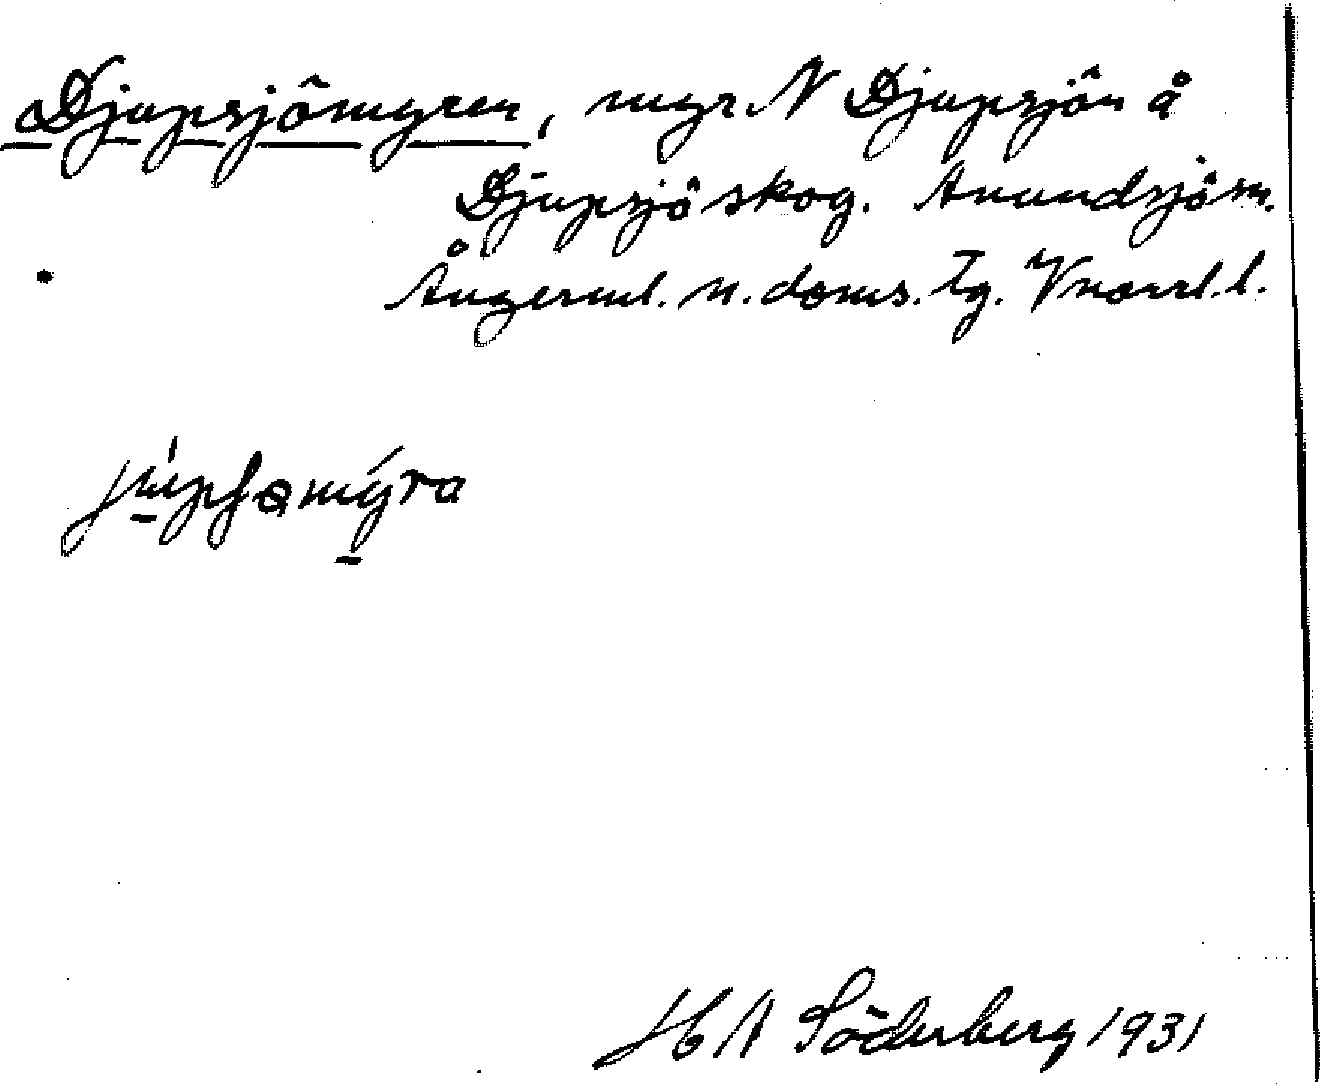 Djupsjömyren, myr N Djupsjön å
Djupsjöskog. Anundsjö sn.
Ångerml. n. doms. tg. Vnorrl. l.
H A Söderberg 1931